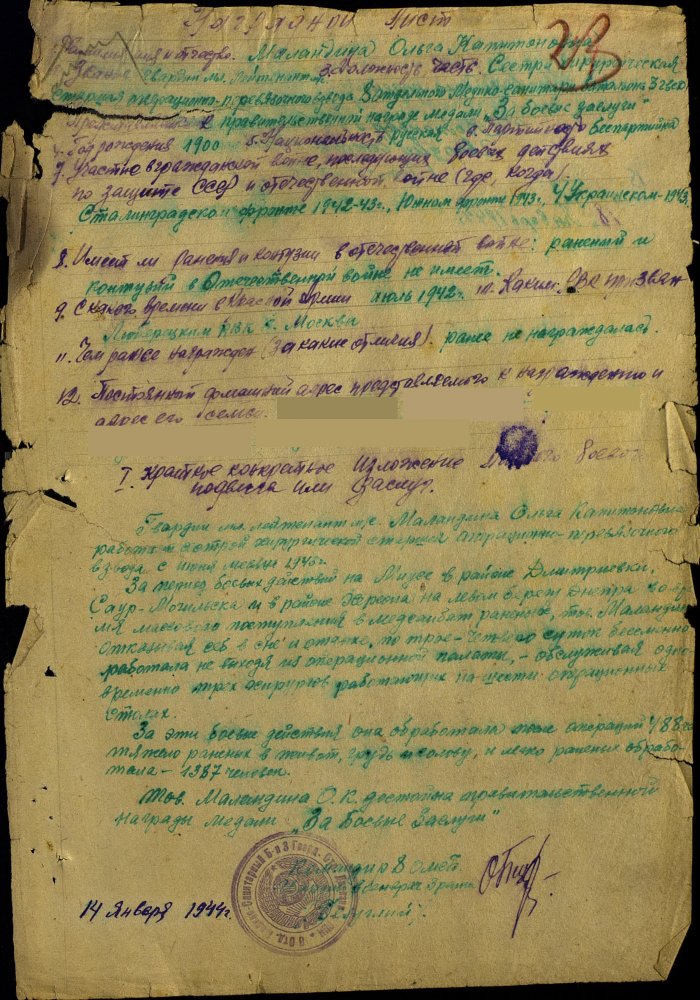 Наградной Лист
23
Фамилия имя и отчество. Маландина Ольга Капитоновна
Звание гвардии мл. лейтенант Должность часть. Сестра хирургическая
старшая операционно-перевязочного взвода 8 отдельного Медико-санитарного батальона 3 гвсд
к правительственной награде медали „За боевые заслуги"
Год рождения 1900 5. Национальность русская 6. Партийность беспартийная
7. Участие в гражданской войне, последующих боевых действиях
по защите СССР и отечественной войне (где, когда)
Сталинградском фронте 1942-43г., Южном фронте 1943г., 4 Украинском-1943
8. Имеет ли ранения и контузии в отечественной войне: ранений и
контузий в Отечественной войне не имеет.
9. С какого времени в Красной Армии июль 1942г. 10. Каким РВК призван
Люберецким РВК г. Москва
11. Чем ранее награжден (за какие отличия). ранее не награждалась.
12. Постоянный домашний адрес представляемого к награждению и
адрес его семьи.
I. Краткое конкретное изложение боевого
подвига или заслуг.
Гвардии мл. лейтенант м/с. Маландина Ольга Капитоновна
работает сестрой хирургической старшей операционно-перевязочного
взвода с июня месяца 1943г.
За период боевых действий на Миусе в районе Дмитриевки,
Саур-Могильска и в районе Херсона на левом берегу Днепра во вре-
мя массового поступления в медсанбат раненых, тов. Маландина
отказывая себе в сне и отдыхе, по трое-четверо суток бессменно
работала не выходя из операционной палаты, - обслуживая одно-
временно трех хирургов работающих на шести операционных
столах.
За эти боевые действия она обработала после операций 488
тяжело раненых в живот, грудь и голову, и легко раненых обрабо-
тала - 1387 человек.
Тов. Маландина О.К. достойна правительственной
награды медали „За Боевые Заслуги"
Командир 8 омсб.
14 января 1944г.